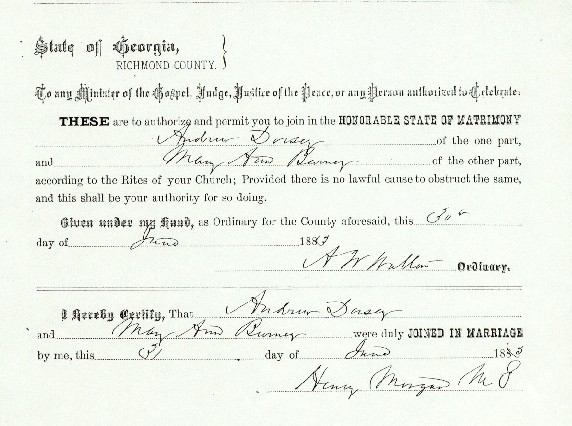 State of Georgia,
RICHMOND COUNTY.
To any Minister of the Gospel, Judge, Justice of the Peace, or any Person authorized to Celebrate:
THESE are to authorize and permit you to join in the HONORABLE STATE OF MATRIMONY
Andrew Dorsey of the one part,
and Mary Ann Barney of the other part,
according to the Rites of your Church; Provided there is no lawful cause to obstruct the same,
and this shall be your authority for so doing.
Given under my Hand, as Ordinary for the County aforesaid, this 30th
day of June 1883
A W Walton Ordinary.
I Hereby Certify, That Andrew Dorsey
and Mary Ann Barney were duly JOINED IN MARRIAGE
by me, this day of June 1883
Henry Morgan M G